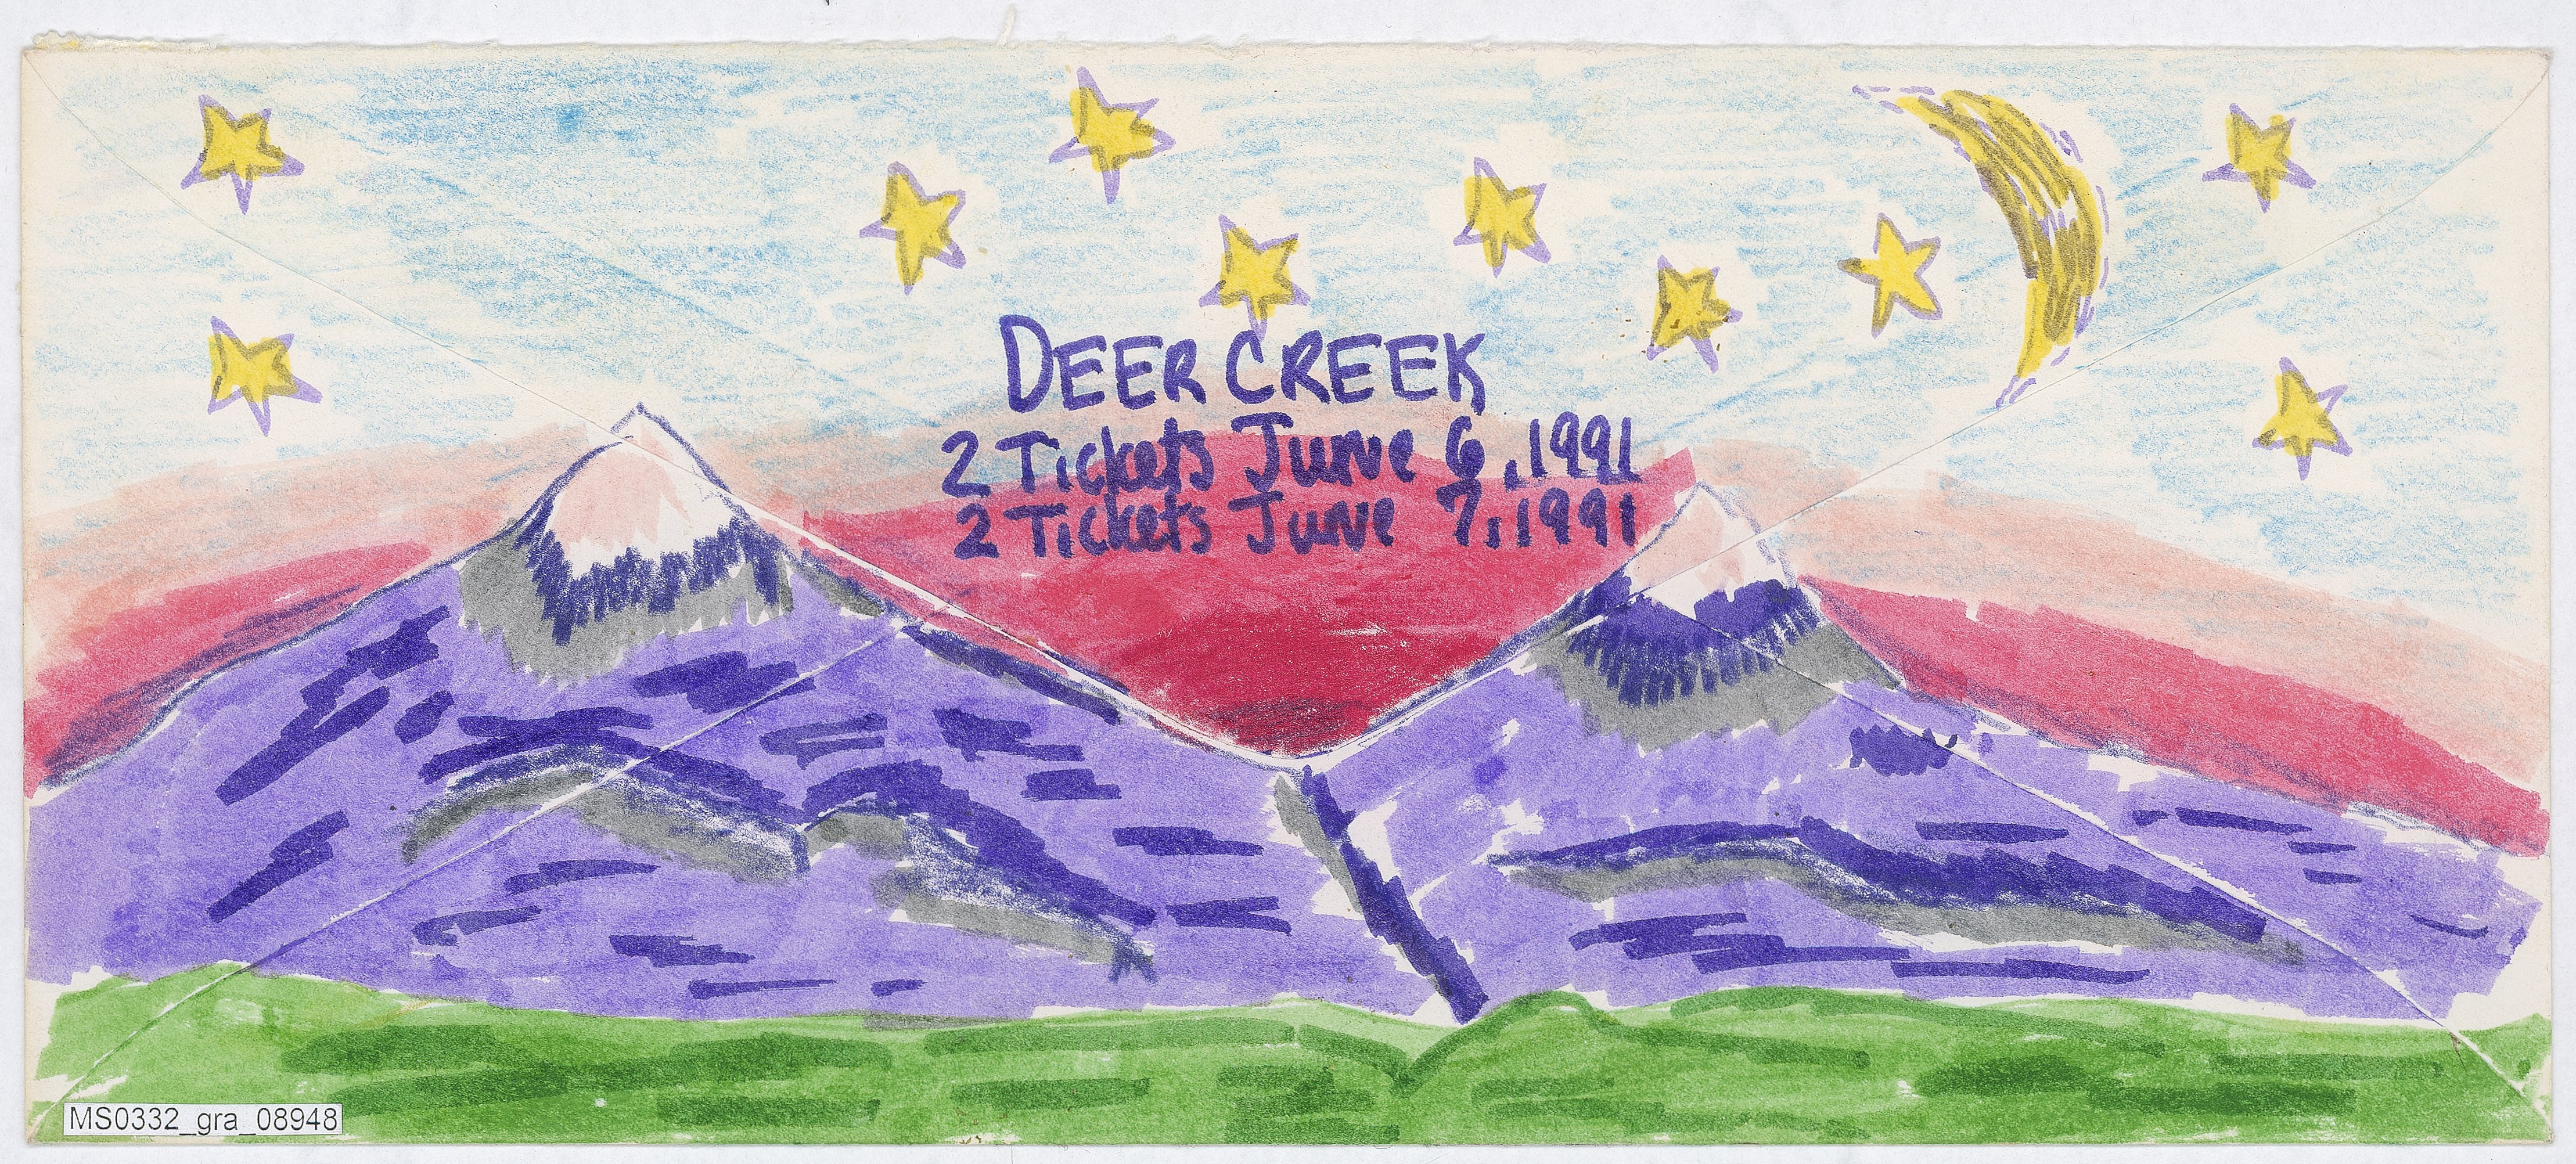 DEER CREEK
2 Tickets June 6, 1991
2 Tickets June 7, 1991
MS0332_gra_08948